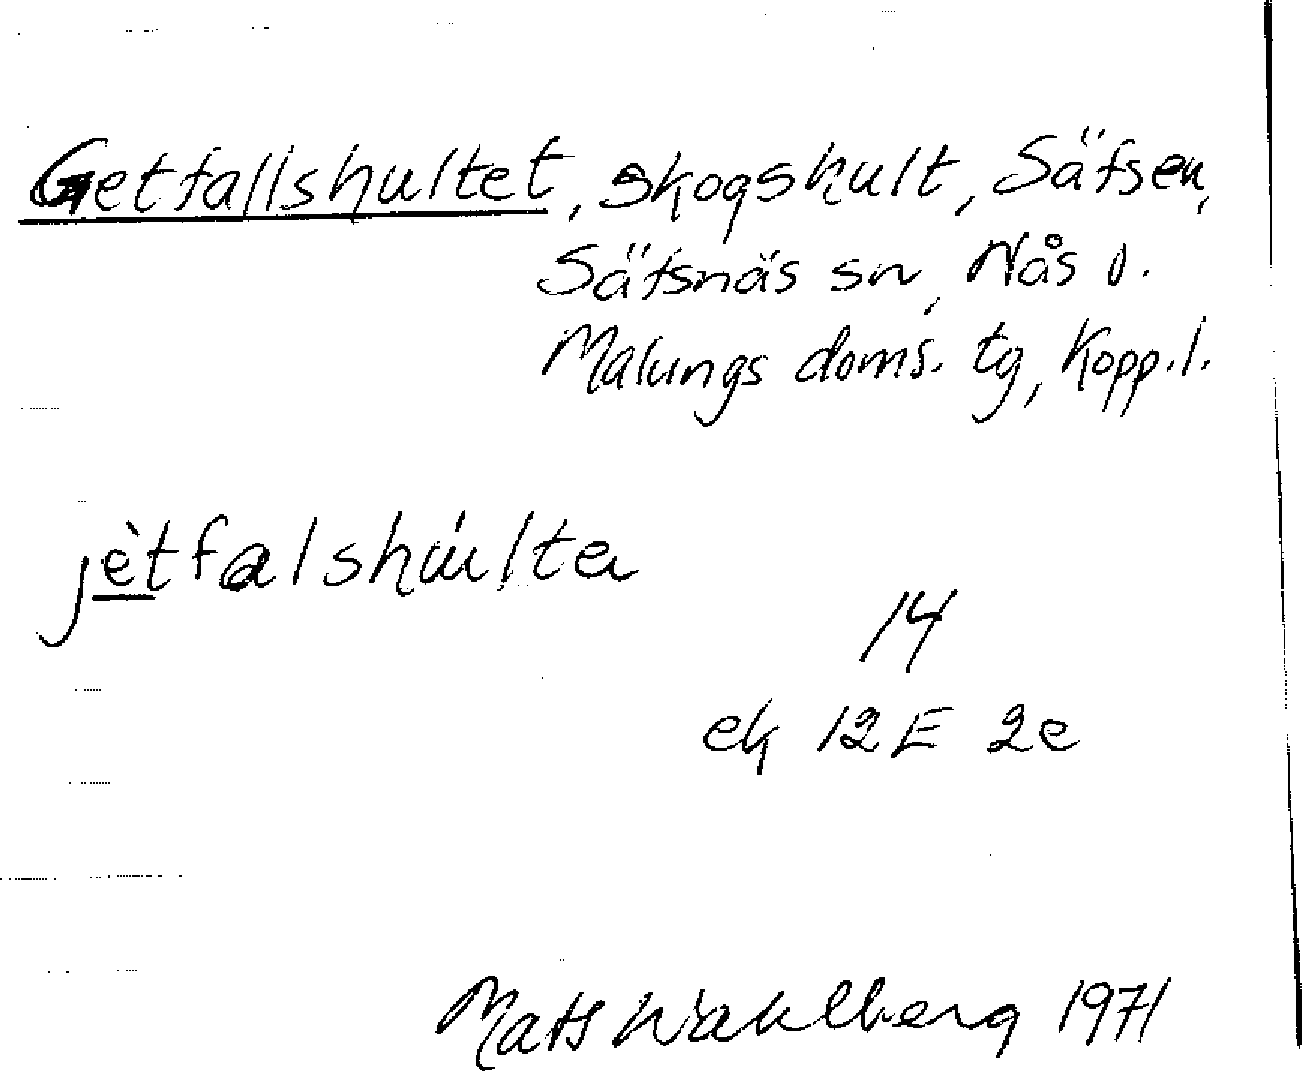 Getfallshultet, skogshult, Säfsen,
Säfsnäs sn, Nås o.
Malungs doms. tg, Kopp. l.
jètfalshúlta
14
ek 12E 2e
Mats Wahlberg 1971